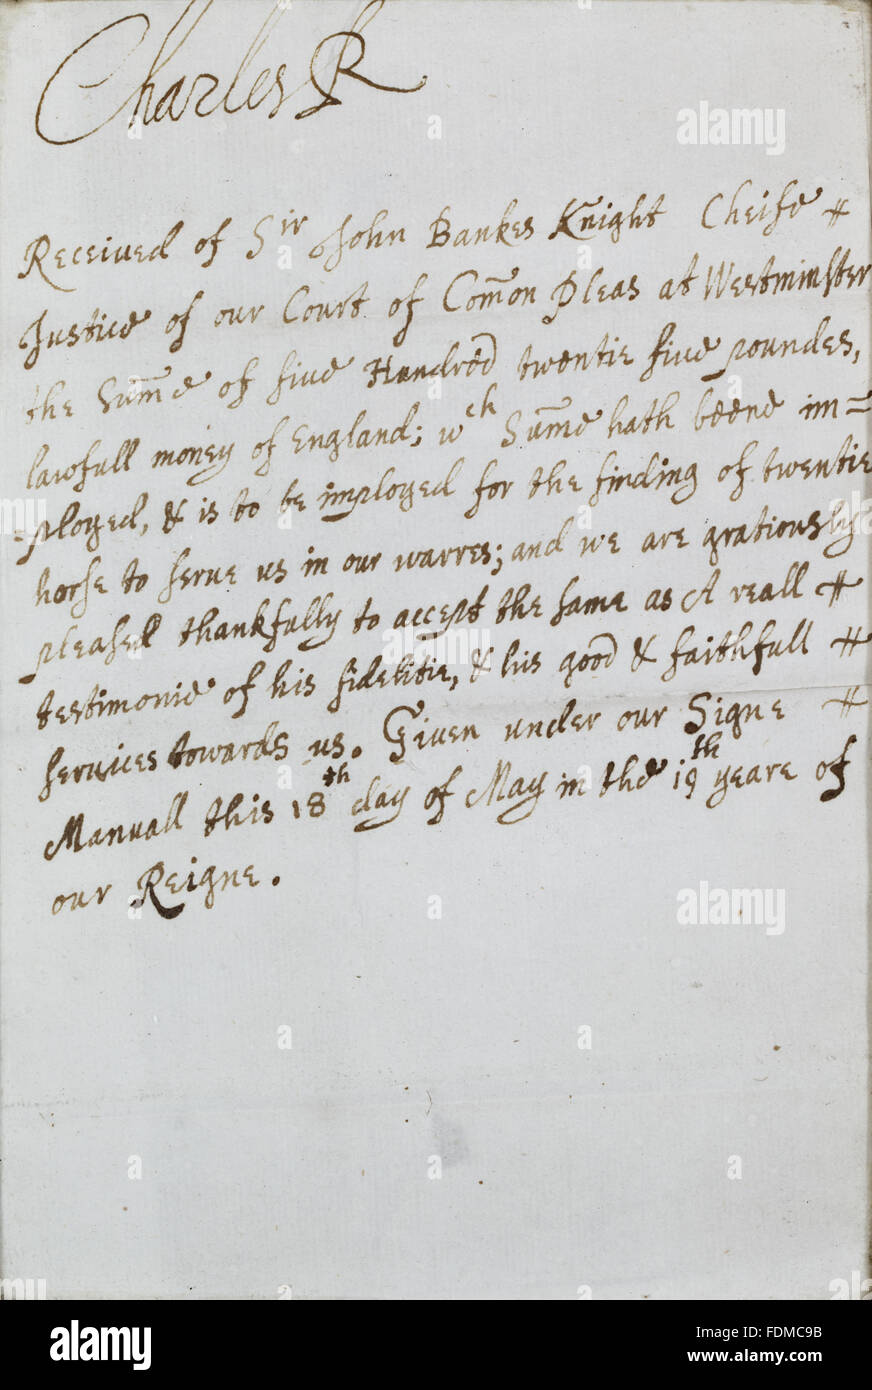 Charles R
Received of Sir John Bankes Knight Cheife
Justice of our Court of Com̄on Pleas at Westminster
the Sum̄e of five Hundred twentie five poundes,
lawfull money of England; wch Sum̄e hath beene im=
=ployed, & is to be imployed for the finding of twentie
horse to serve us in our warres; and we are gratiously
pleased thankfully to accept the same as A reall
testimonie of his fidelitie, & his good & faithfull
services towards us. Given under our Signe
Manuall this 18th day of May in the 19th yeare of
our Reigne.
alamy
alamy
alamy
alamy
a
a
a
a
a
a
a
a
alamy
Image ID: FDMC9B
www.alamy.com